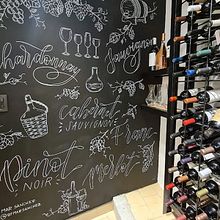 Chardonnay
Sauvignon
Cabernet
SAUVIGNON
Franc
Pinot
NOIR
Merlot
MAR SANCHEZ